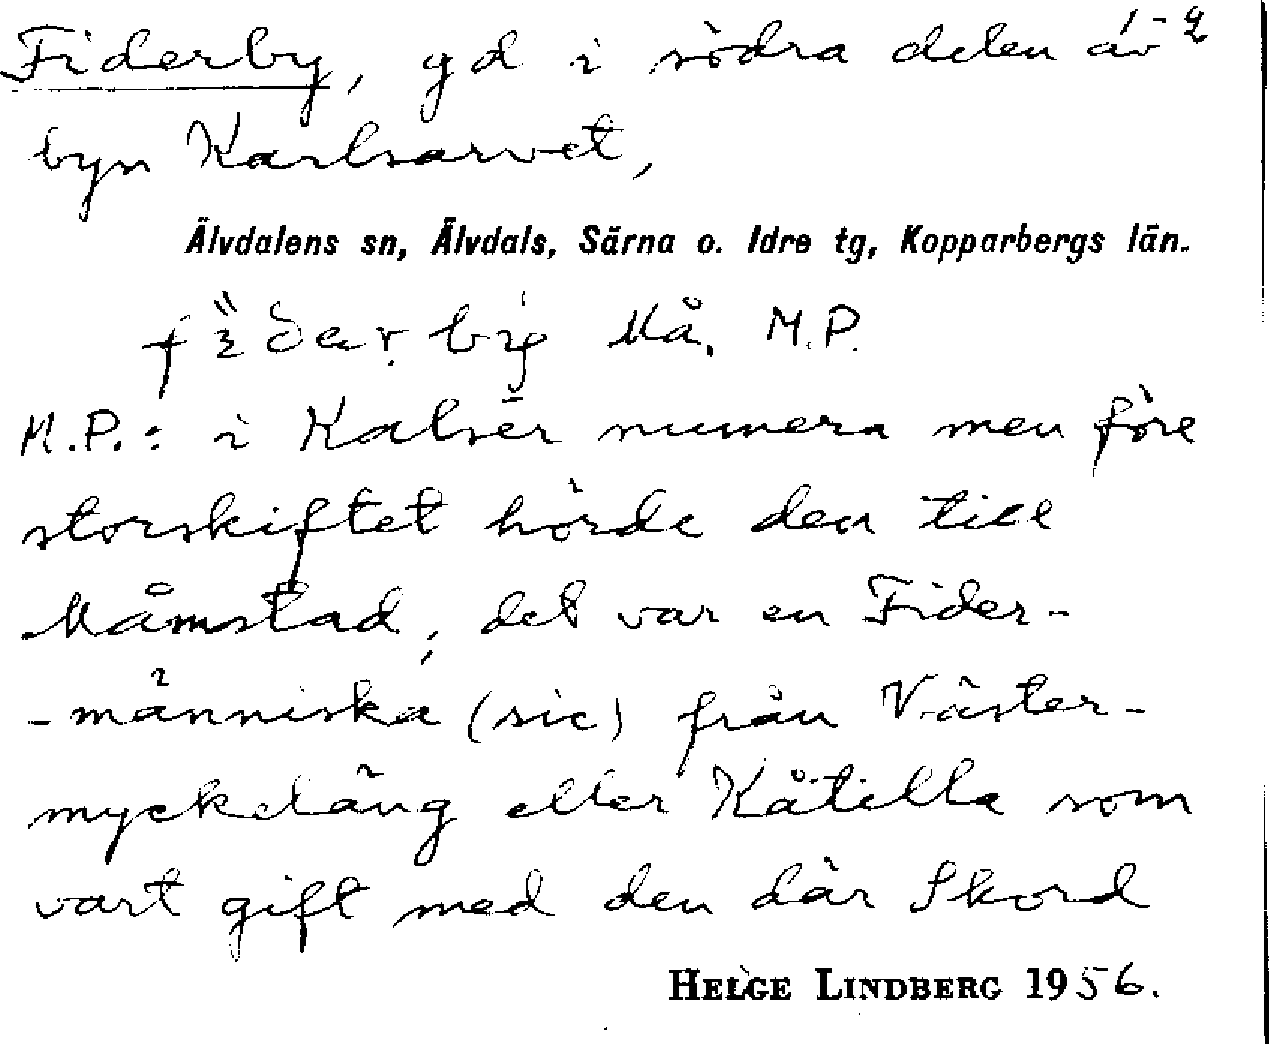 Fiderby, gd i södra delen av 1-2
byn Karlsarvet,
Älvdalens sn, Älvdals, Särna o. Idre tg, Kopparbergs län.
Må, M.P.
M.P.: i Kalsēr numera men före
storskiftet hörde den till
Månstad; det var en Fider-
-människa (sic) från Väster-
myckeläng eller Kåtilla som
vart gift med den där Skord
HELGE LINDBERG 1956.